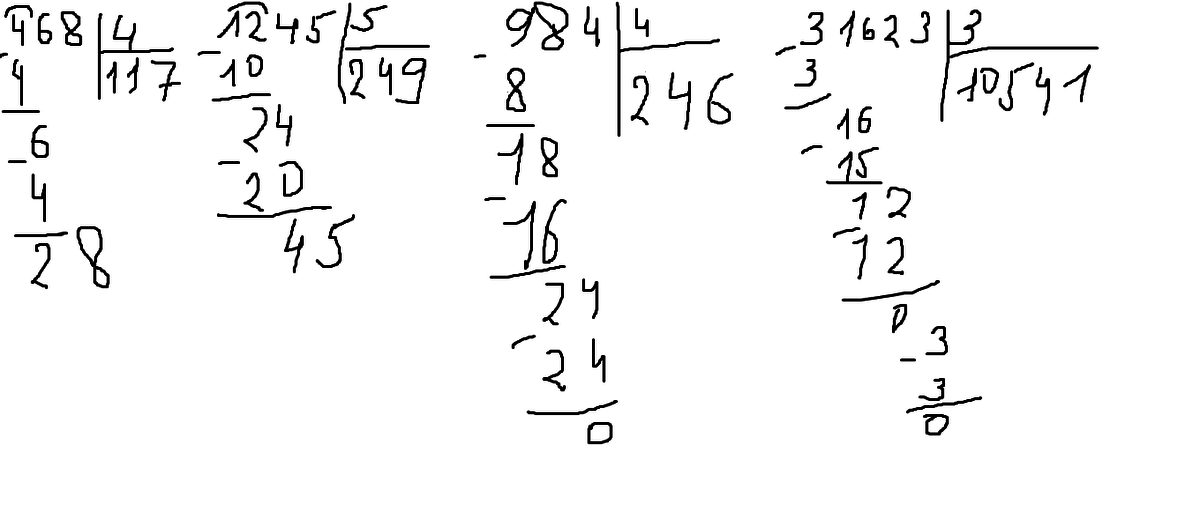 468 4
4 117
- 6
4
28
1245 5
- 10 249
24
- 20
45
984 4
- 8 246
18
- 16
24
- 24
0
31623 3
- 3 10541
16
- 15
12
- 12
0
- 3
3
0